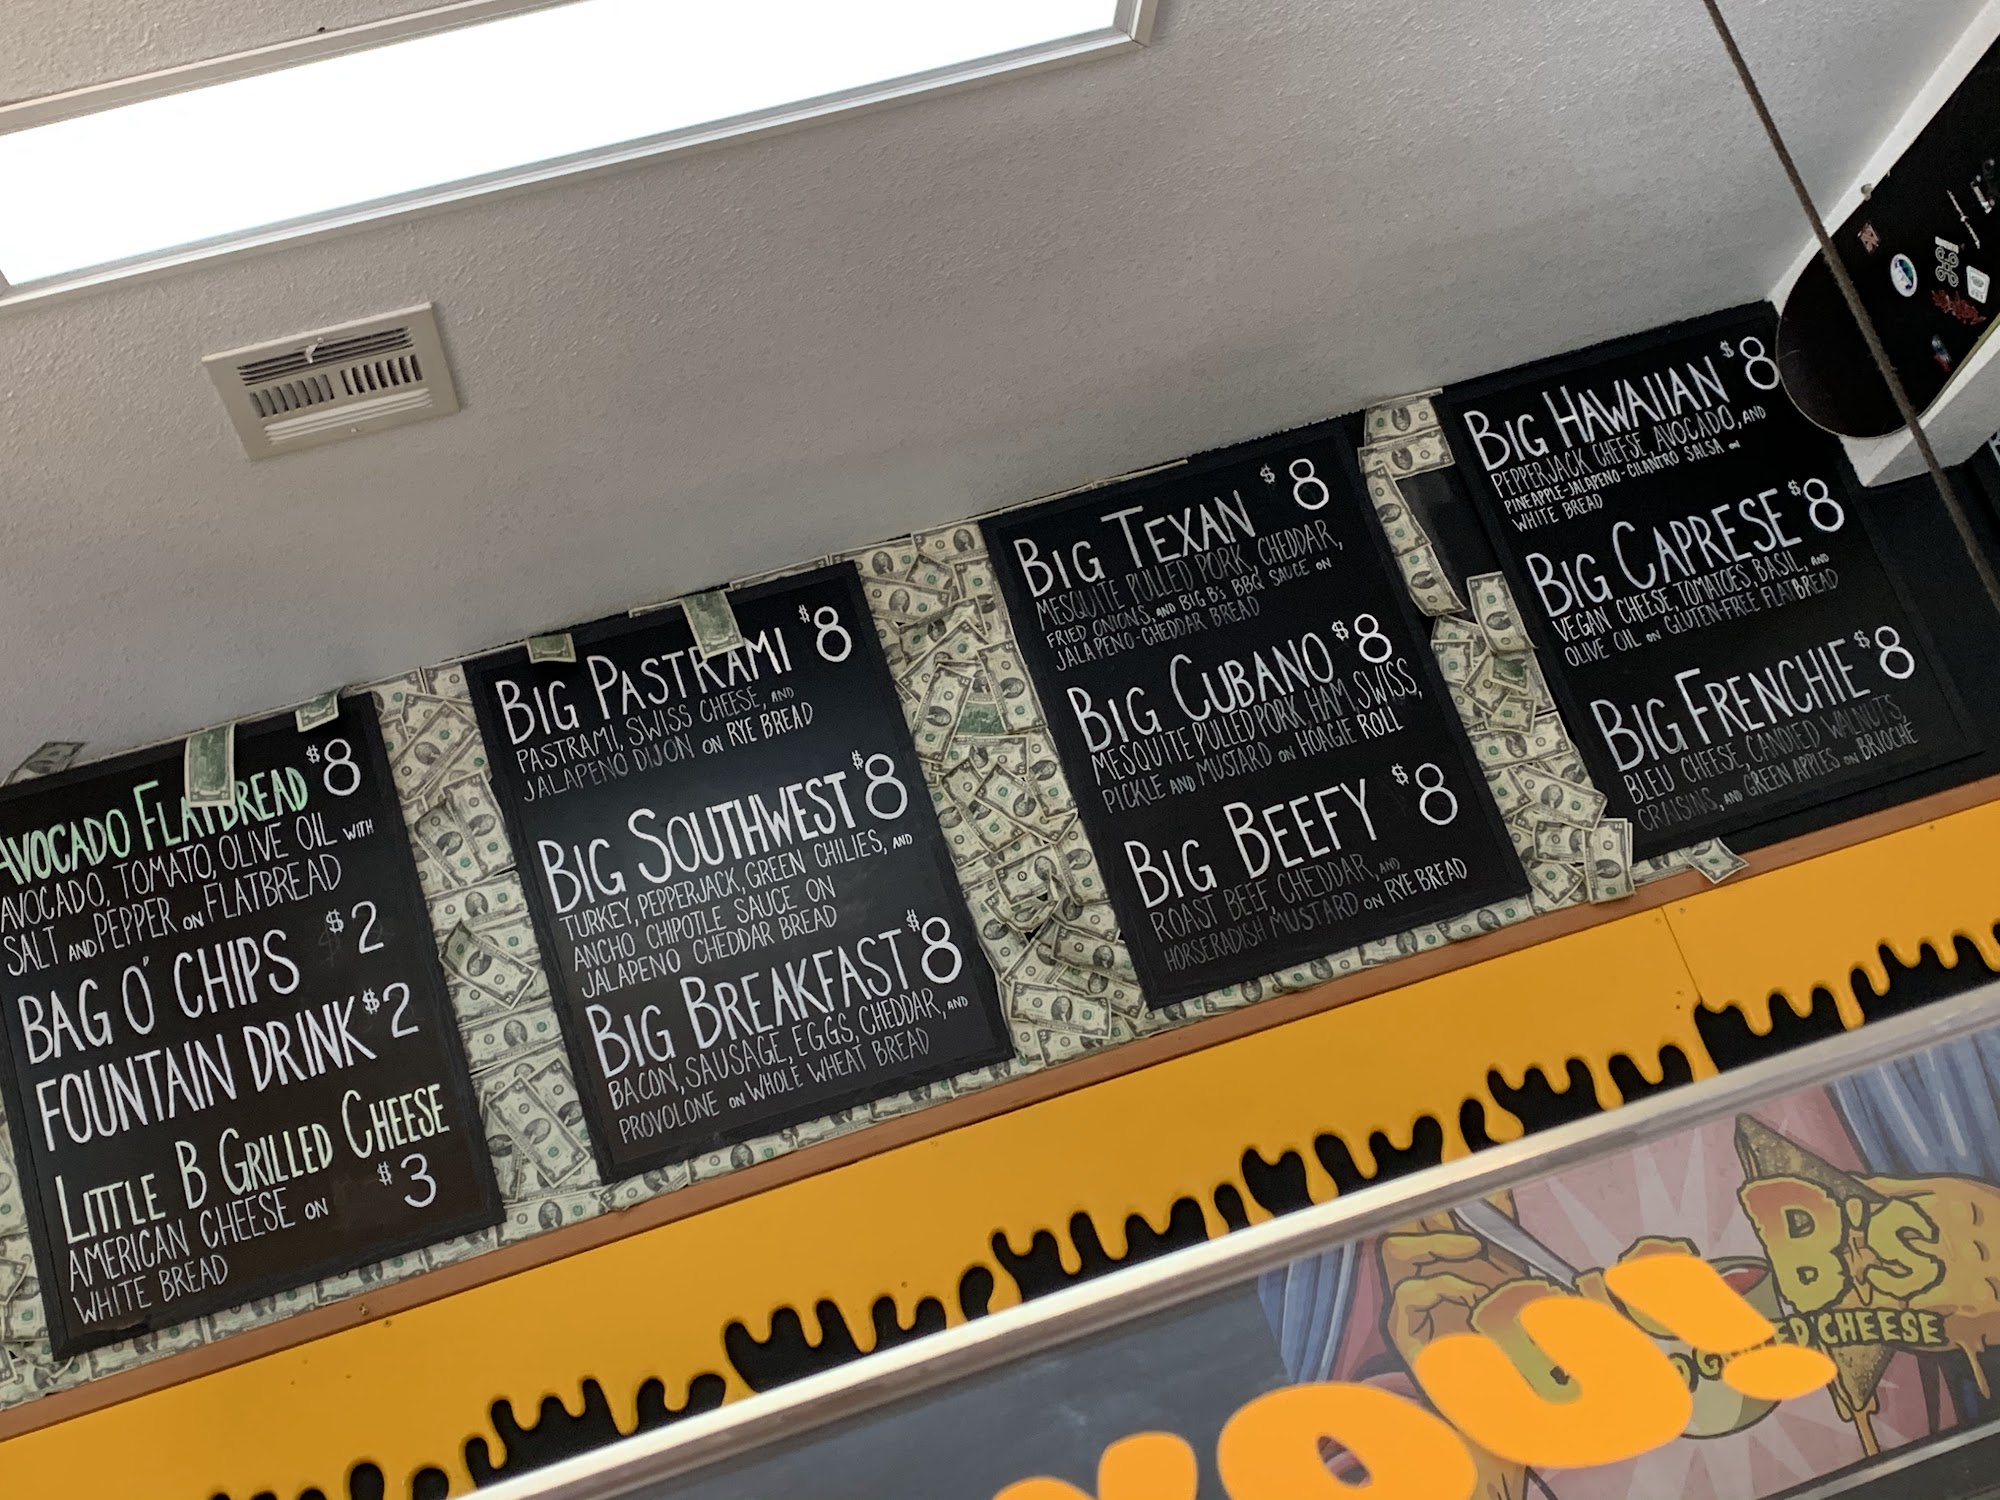 AVOCADO FLATBREAD $8
AVOCADO, TOMATO, OLIVE OIL WITH
SALT AND PEPPER ON FLATBREAD
BAG O' CHIPS $2
FOUNTAIN DRINK $2
LITTLE B GRILLED CHEESE
AMERICAN CHEESE ON $3
WHITE BREAD
BIG PASTRAMI $8
PASTRAMI, SWISS CHEESE, AND
JALAPENO DIJON ON RYE BREAD
BIG SOUTHWEST $8
TURKEY, PEPPERJACK, GREEN CHILIES, AND
ANCHO CHIPOTLE SAUCE ON
JALAPENO CHEDDAR BREAD
BIG BREAKFAST $8
BACON, SAUSAGE, EGGS, CHEDDAR, AND
PROVOLONE ON WHOLE WHEAT BREAD
BIG TEXAN $8
MESQUITE PULLED PORK, CHEDDAR,
FRIED ONIONS, AND BIG B's BBQ SAUCE ON
JALAPENO-CHEDDAR BREAD
BIG CUBANO $8
MESQUITE PULLED PORK, HAM, SWISS,
PICKLE AND MUSTARD ON HOAGIE ROLL
BIG BEEFY $8
ROAST BEEF, CHEDDAR, AND
HORSERADISH MUSTARD ON RYE BREAD
BIG HAWAIIAN $8
PEPPERJACK CHEESE, AVOCADO, AND
PINEAPPLE-JALAPENO-CILANTRO SALSA ON
WHITE BREAD
BIG CAPRESE $8
VEGAN CHEESE, TOMATOES, BASIL, AND
OLIVE OIL ON GLUTEN-FREE FLATBREAD
BIG FRENCHIE $8
BLEU CHEESE, CANDIED WALNUTS,
CRAISINS, AND GREEN APPLES ON BRIOCHE
B'S
CHEESE
YOU!